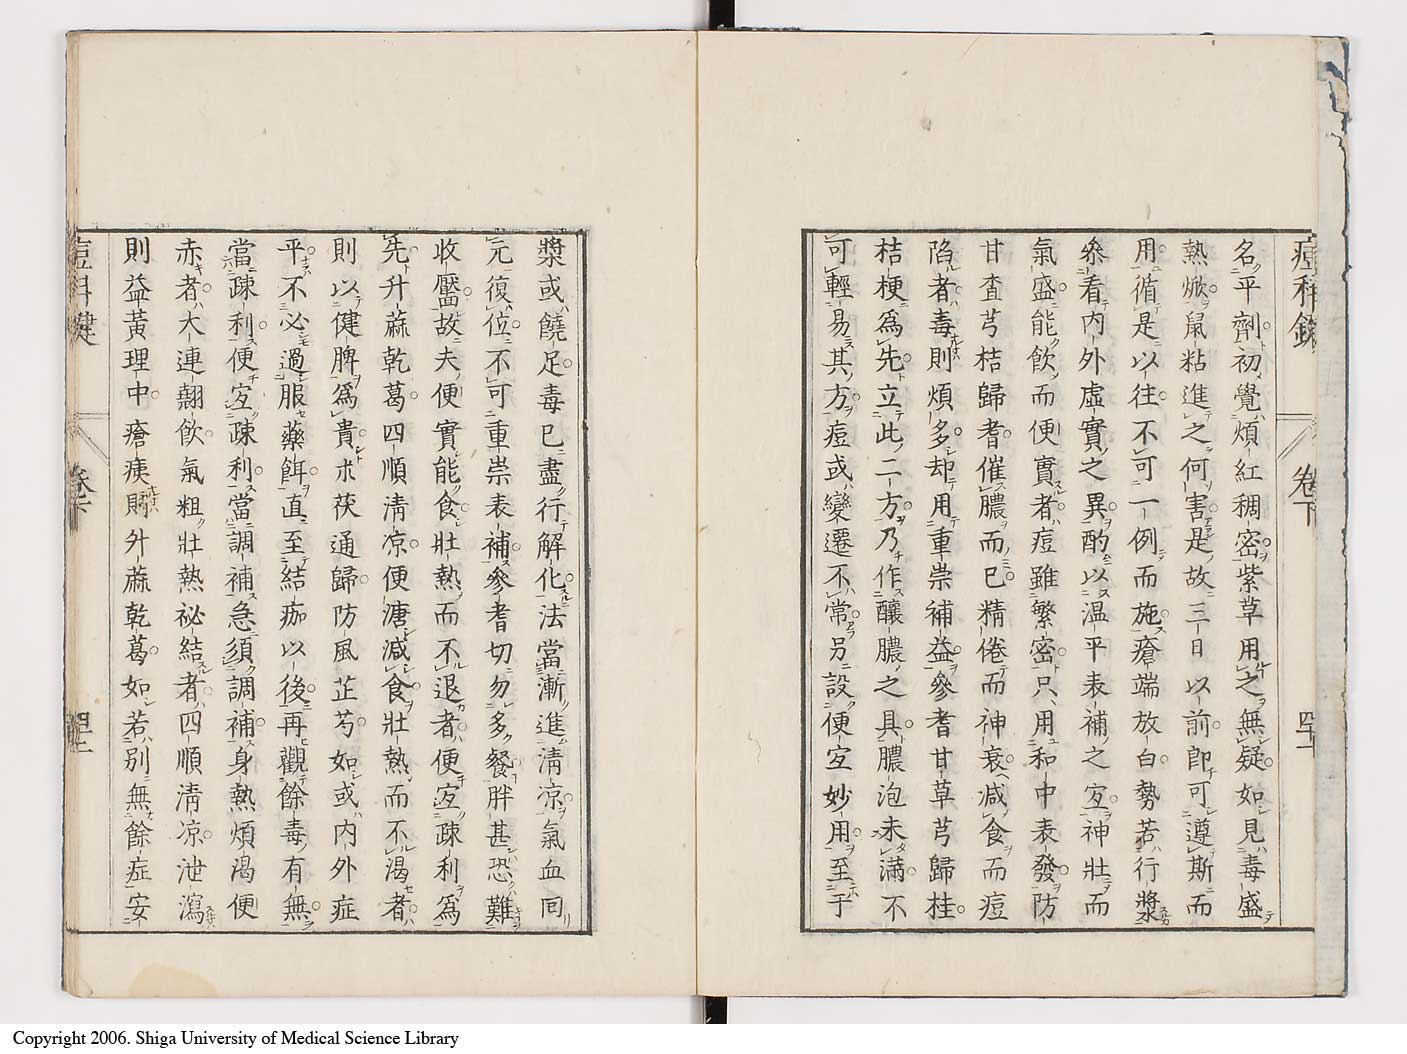 痘科鍵
卷下
名平劑初覺煩紅稠密紫草用之無疑如見毒盛
熱燉鼠粘進之何害是故三日以前即可遵斯而
用循是以往不可一例而施瘡端放白勢若行漿
叅看內外虛實之異酌以温平表補之宜神壯而
氣盛能飲而便實者痘雖繁密只用和中表發防
甘査芎桔歸耆催膿而已精倦而神衰減食而痘
陷者毒則煩多却用重崇補益參耆甘草芎歸桂
桔梗爲先立此二方乃作釀膿之具膿泡未滿不
可輕易其方痘或變遷不常另設便宜妙用至于
漿或饒足毒已盡行解化法當漸進清凉氣血囘
元復位不可重崇表補參耆切勿多餐胖甚恐難
收靨故夫便實能食壯熱而不退者便宜疎利爲
先升蔴乾葛四順清凉便溏減食壯熱而不渴者
則以健脾爲貴朮茯通歸防風芷芍如或内外症
平不必過服藥餌直至結痂以後再觀餘毒有無
當疎利便宜疎利當調補急須調補身熱煩渴便
赤者大連翹飲氣粗壯熱祕結者四順清凉泄瀉
則益黃理中瘡痍則升蔴乾葛如若別無餘症安
痘科鍵
卷下